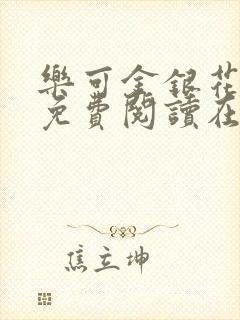 樂可金銀花
免費閱讀在
焦立坤